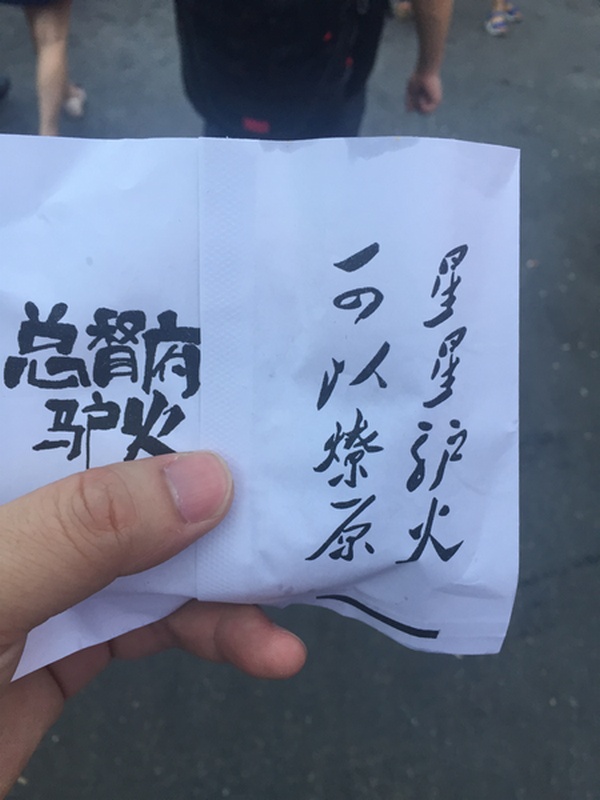 总督府
驴火
星星驴火
可以燎原